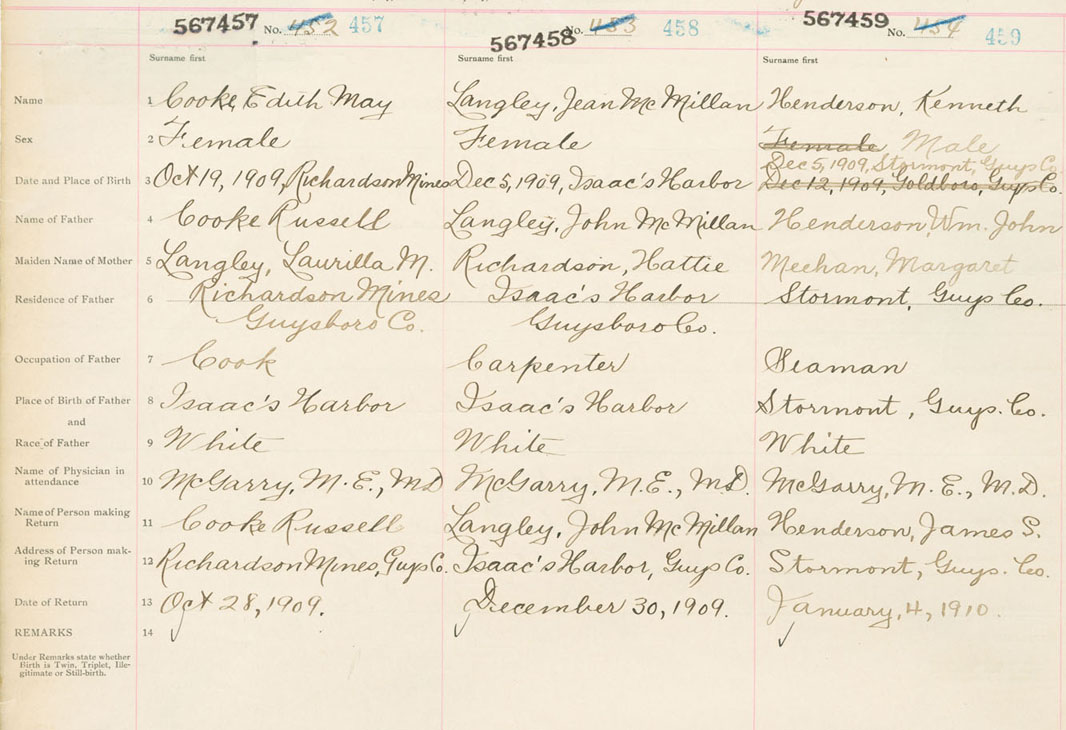 567457 No. 452 457 567458 No. 453 458 567459 No. 454 459
Surname first Surname first Surname first
Name 1 Cooke, Edith May Langley, Jean McMillan Henderson, Kenneth
Sex 2 Female Female Female Male
Dec 5, 1909, Stormont, Guys Co.
Date and Place of Birth 3 Oct 19, 1909, Richardson Mines Dec 5, 1909, Isaac's Harbor Dec 12, 1909, Goldboro, Guys Co.
Name of Father 4 Cooke Russell Langley, John McMillan Henderson, Wm. John
Maiden Name of Mother 5 Langley, Laurilla M. Richardson, Hattie Meehan, Margaret
Residence of Father 6 Richardson Mines Isaac's Harbor Stormont, Guys Co.
Guysboro Co. Guysboro Co.
Occupation of Father 7 Cook Carpenter Seaman
Place of Birth of Father 8 Isaac's Harbor Isaac's Harbor Stormont, Guys. Co.
and
Race of Father 9 White White White
Name of Physician in
attendance 10 McGarry, M.E., MD McGarry, M.E., M.D. McGarry, M.E., M.D.
Name of Person making
Return 11 Cooke Russell Langley, John McMillan Henderson, James S.
Address of Person mak-
ing Return 12 Richardson Mines, Guys Co. Isaac's Harbor, Guys Co. Stormont, Guys. Co.
Date of Return 13 Oct 28, 1909. December 30, 1909. January, 4, 1910.
REMARKS 14
Under Remarks state whether
Birth is Twin, Triplet, Ille-
gitimate or Still-birth.